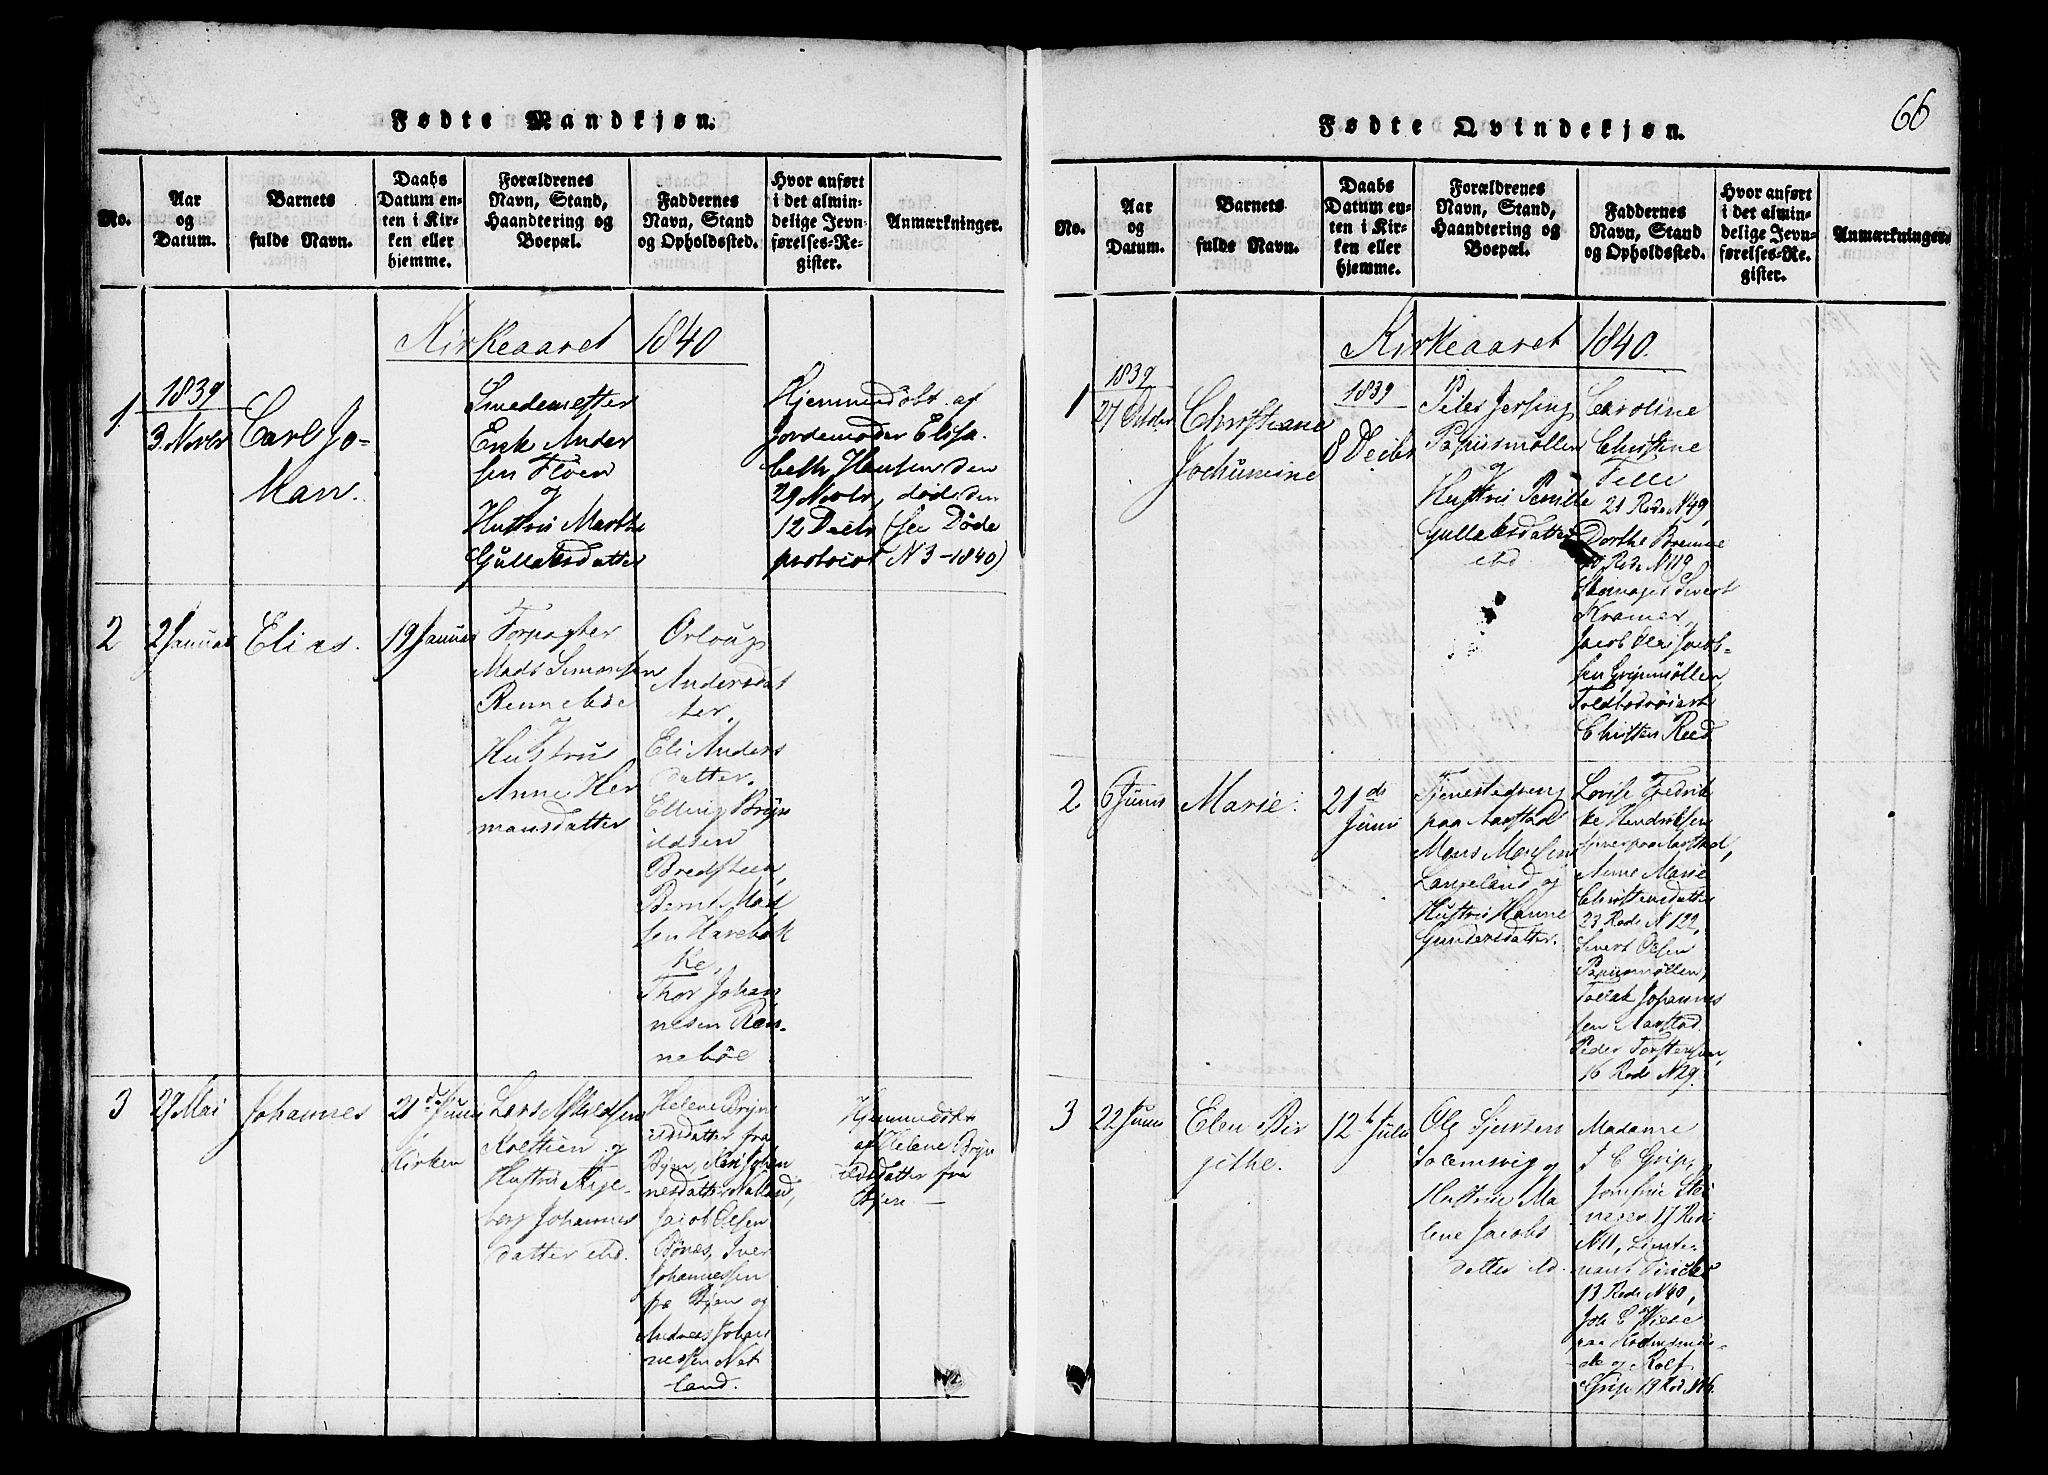 Fødte Mandkjøn.
No.
Aar
og
Datum.
Barnets
fulde Navn.
Daabs
Datum en-
ten i Kir-
ken eller
hjemme.
Forældrenes
Navn, Stand,
Haandtering og
Boepæl.
Faddernes
Navn, Stand
og Opholdssted.
Hvor anført
i det almin-
delige Jevn-
førelses-Re-
gister.
Anmærkninger.
Kirkeaaret 1840
1.
1839
3 Novbr
Carl Jo-
Man.
Smedemester
Erik Ander
sen Floen
og
Hustru Marthe
Gullaksdatter
Hjemmedøbt af
Jordemoder Elisa-
beth Hansen den
29 Novbr, død den
12 Decbr (see Døde
protocol N 3-1840)
2
2 Januar
Elias.
19 Januar
Forpagter
Mads Simonsen
Rennebøe
og
Hustrue
Anne Her
mansdatter
Andersdat
ter,
Eli Anders
datter,
Elling Brÿn
ildsen
Bredsteen,
Bernt Mad
sen Harebak
ke,
Thor Johan
nesen Ren-
nebøe
3
29 Mai
Johannes
21 d Juni
Kirken
Lars
og
Hustru
berg Johannes
datter ibd.
Helene Brÿn
ildsdatter fra
Bÿen, Kari Johan
nesdatter Natland,
Jacob Olsen
Bønes, Iver
Johannessen
fra Bÿen og
Andreas Johan
nessen Nat
land.
Hjemmedøbt
af Helene Brÿn
ildsdatter fra
Bÿen
66
Fødte Qvindekjøn.
No.
Aar
og
Datum.
Barnets
fulde Navn.
Daabs
Datum en-
ten i Kir-
ken eller
hjemme.
Forældrenes
Navn, Stand,
Haandtering og
Boepæl.
Faddernes
Navn, Stand
og Opholdssted.
Hvor anført
i det almin-
delige Jevn-
førelses-Re-
gister.
Anmærkninger.
Kirkeaaret 1840.
1
1839
27 Octbr
Christiane
Jochumine
1839
8 Decbr
Peter
Papiirmøllen
og
Hustru Pernille
Gullaksdatter
ibd
Caroline
Christine
21 Rode N 49,
Dorthe
Rode N 119
Sivert
Kramer,
Jacob
sen Gripsmøllen,
Christen Reed
2
6 Juni
Marie.
21 de
Juni
Tjenestedreng
paa Aarstad
Mons Monsen
Langeland og
Hustru Hanne
Gundersdatter.
Lovise Fredrik
ke Hendriksen
Anne Marie
Christensdatter
23 Rode N 122,
Sivert Olsen
Papiirmøllen,
Tollak Johannes
sen Aarstad
Peder Torstensen,
16 Rode N 29.
3
22 Juni
Elen Bir
githe.
12 t Juli
Ole Sjursen
Solemsvig og
Hustrue Ma
lene Jacobs
datter ibd.
Madame
Grip,
Jomfrue Stei
neger 17 Rode
N 11, Lieute-
nant
13 Rode N 40,
Joh C Wiese
og Rolf
Grip 19 Rod N 16.